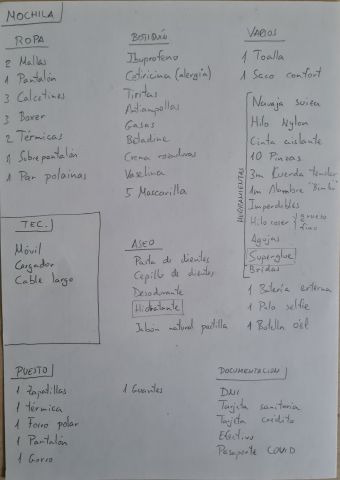 MOCHILA
ROPA
2 Mallas
1 Pantalón
3 Calcetines
3 Boxer
2 Térmicas
1 Sobrepantalón
1 Par polainas
BOTIQUÍN
Ibuprofeno
Cetiricina (alergia)
Tiritas
Antiampollas
Gasas
Betadine
Crema rozaduras
Vaselina
5 Mascarilla
VARIOS
1 Toalla
1 Saco confort
HERRAMIENTAS
Navaja suiza
Hilo Nylon
Cinta aislante
10 Pinzas
3m Cuerda tender
1m Alambre "Bimbo"
Imperdibles
Hilo coser { grueso
fino
Agujas
Superglue
Bridas
1 Batería externa
1 Palo selfie
1 Botella
TEC.
Móvil
Cargador
Cable largo
ASEO
Pasta de dientes
Cepillo de dientes
Desodorante
Hidratante
Jabón natural pastilla
PUESTO
1 Zapatillas
1 térmica
1 Forro polar
1 Pantalón
1 Gorro
1 Guantes
DOCUMENTACION
DNI
Tarjeta sanitaria
Tarjeta crédito
Efectivo
Pasaporte COVID